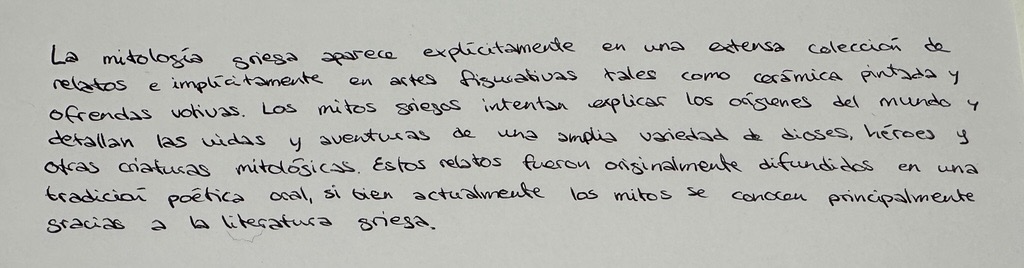 La mitología griega aparece explícitamente en una extensa colección de
relatos e implícitamente en artes figurativas tales como cerámica pintada y
ofrendas votivas. Los mitos griegos intentan explicar los orígenes del mundo y
detallan las vidas y aventuras de una amplia variedad de dioses, héroes y
otras criaturas mitológicas. Estos relatos fueron originalmente difundidos en una
tradición poética oral, si bien actualmente los mitos se conocen principalmente
gracias a la literatura griega.